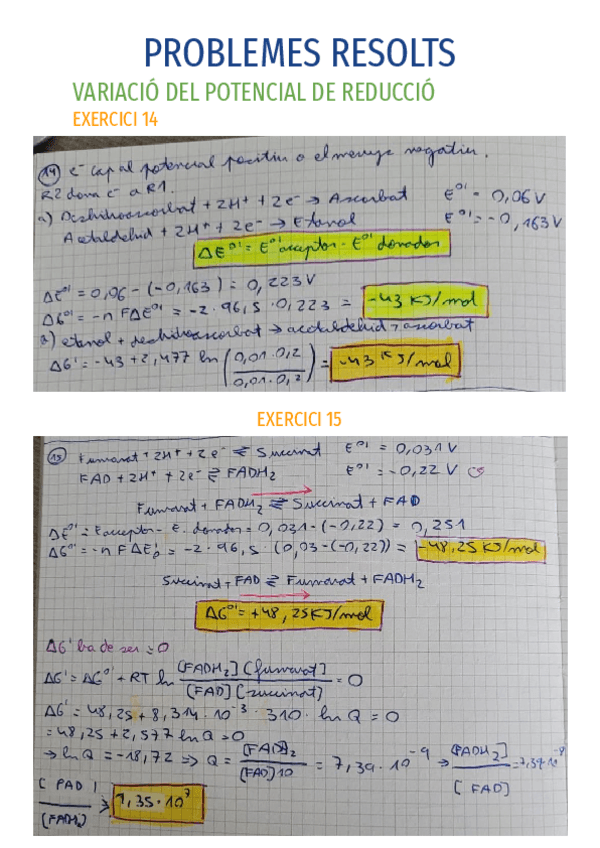 PROBLEMES RESOLTS
VARIACIÓ DEL POTENCIAL DE REDUCCIÓ
EXERCICI 14
14) e⁻ cap al potencial positiu o el menys negatiu.
R2 dona e⁻ a R1.
a) Deshidroascorbat + 2H⁺ + 2e⁻ → Ascorbat E⁰' = 0,06 V
Acetaldehid + 2H⁺ + 2e⁻ → Etanol E⁰' = -0,163 V
ΔE⁰' = E⁰' acceptor - E⁰' donador
ΔE⁰' = 0,06 - (-0,163) = 0,223 V
ΔG⁰' = -n F ΔE⁰' = -2 · 96,5 · 0,223 = -43 KJ/mol
a) etanol + deshidroascorbat → acetaldehid + ascorbat
ΔG' = -43 + 2,477 ln (0,01 · 0,2 / 0,01 · 0,2) = -43 KJ/mol
EXERCICI 15
15) Fumarat + 2H⁺ + 2e⁻ ⇌ Succinat E⁰' = 0,031 V
FAD + 2H⁺ + 2e⁻ ⇌ FADH₂ E⁰' = -0,22 V
Fumarat + FADH₂ ⇌ Succinat + FAD
ΔE⁰' = E acceptor - E. donador = 0,031 - (-0,22) = 0,251
ΔG⁰' = -n F ΔE₀' = -2 · 96,5 · (0,03 - (-0,22)) = -48,25 KJ/mol
Succinat + FAD ⇌ Fumarat + FADH₂
ΔG⁰' = +48,25 KJ/mol
ΔG' ha de ser = 0
ΔG' = ΔG⁰' + RT ln [FADH₂] [fumarat] / [FAD] [succinat] = 0
ΔG' = 48,25 + 8,314 · 10⁻³ · 310 · ln Q = 0
= 48,25 + 2,577 ln Q = 0
→ ln Q = -18,72 ⇒ Q = / [FAD] 10 = 7,39 · 10⁻⁹ → [FADH₂] / [FAD] = 7,39 · 10⁻⁸
[FAD] / [FADH₂] ≥ 1,35 · 10⁷